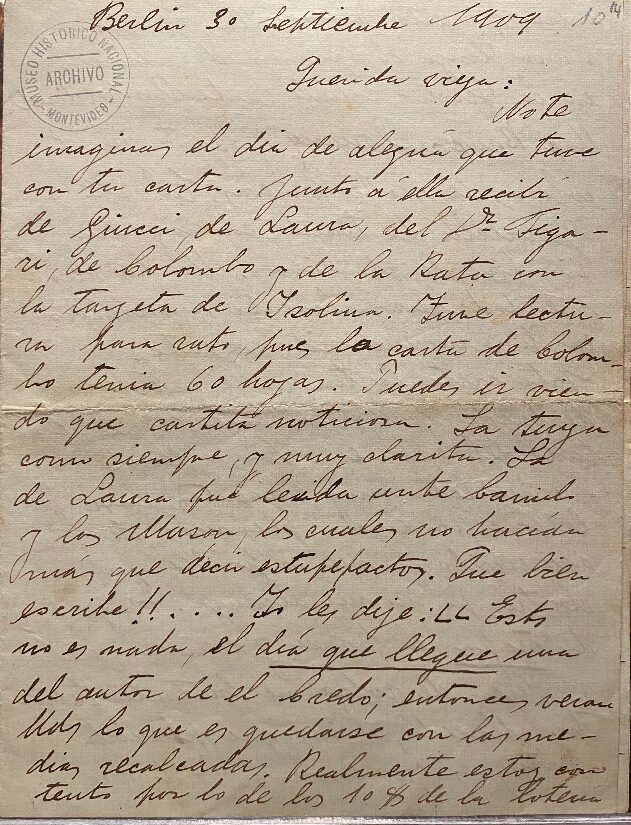 Berlin 30 Septiembre 1909
10 14
MUSEO HISTORICO NACIONAL
ARCHIVO
MONTEVIDEO
Querida vieja:
No te
imaginas el dia de alegria que tuve
con tu carta. Junto á ella recibí
de Giucci, de Laura, del Dr. Figa-
ri, de Colombo y de la Rata con
la targeta de Isolina. Tuve lectu-
ra para rato, pues la carta de Colom-
bo tenia 60 hojas. Puedes ir vien-
do que cartita noticiosa. La tuya
como siempre, y muy clarita. La
de Laura fué leida ante Camilo
y los Mason, los cuales no hacían
más que decir estupefactos. Que bien
escribe!!.... Yo les dije: "Esto
no es nada, el día que llegue una
del autor de el Credo; entonces veran
Uds lo que es quedarse con las me-
dias recalcadas. Realmente estoy con
tento por lo de los 10 $ de la loteria